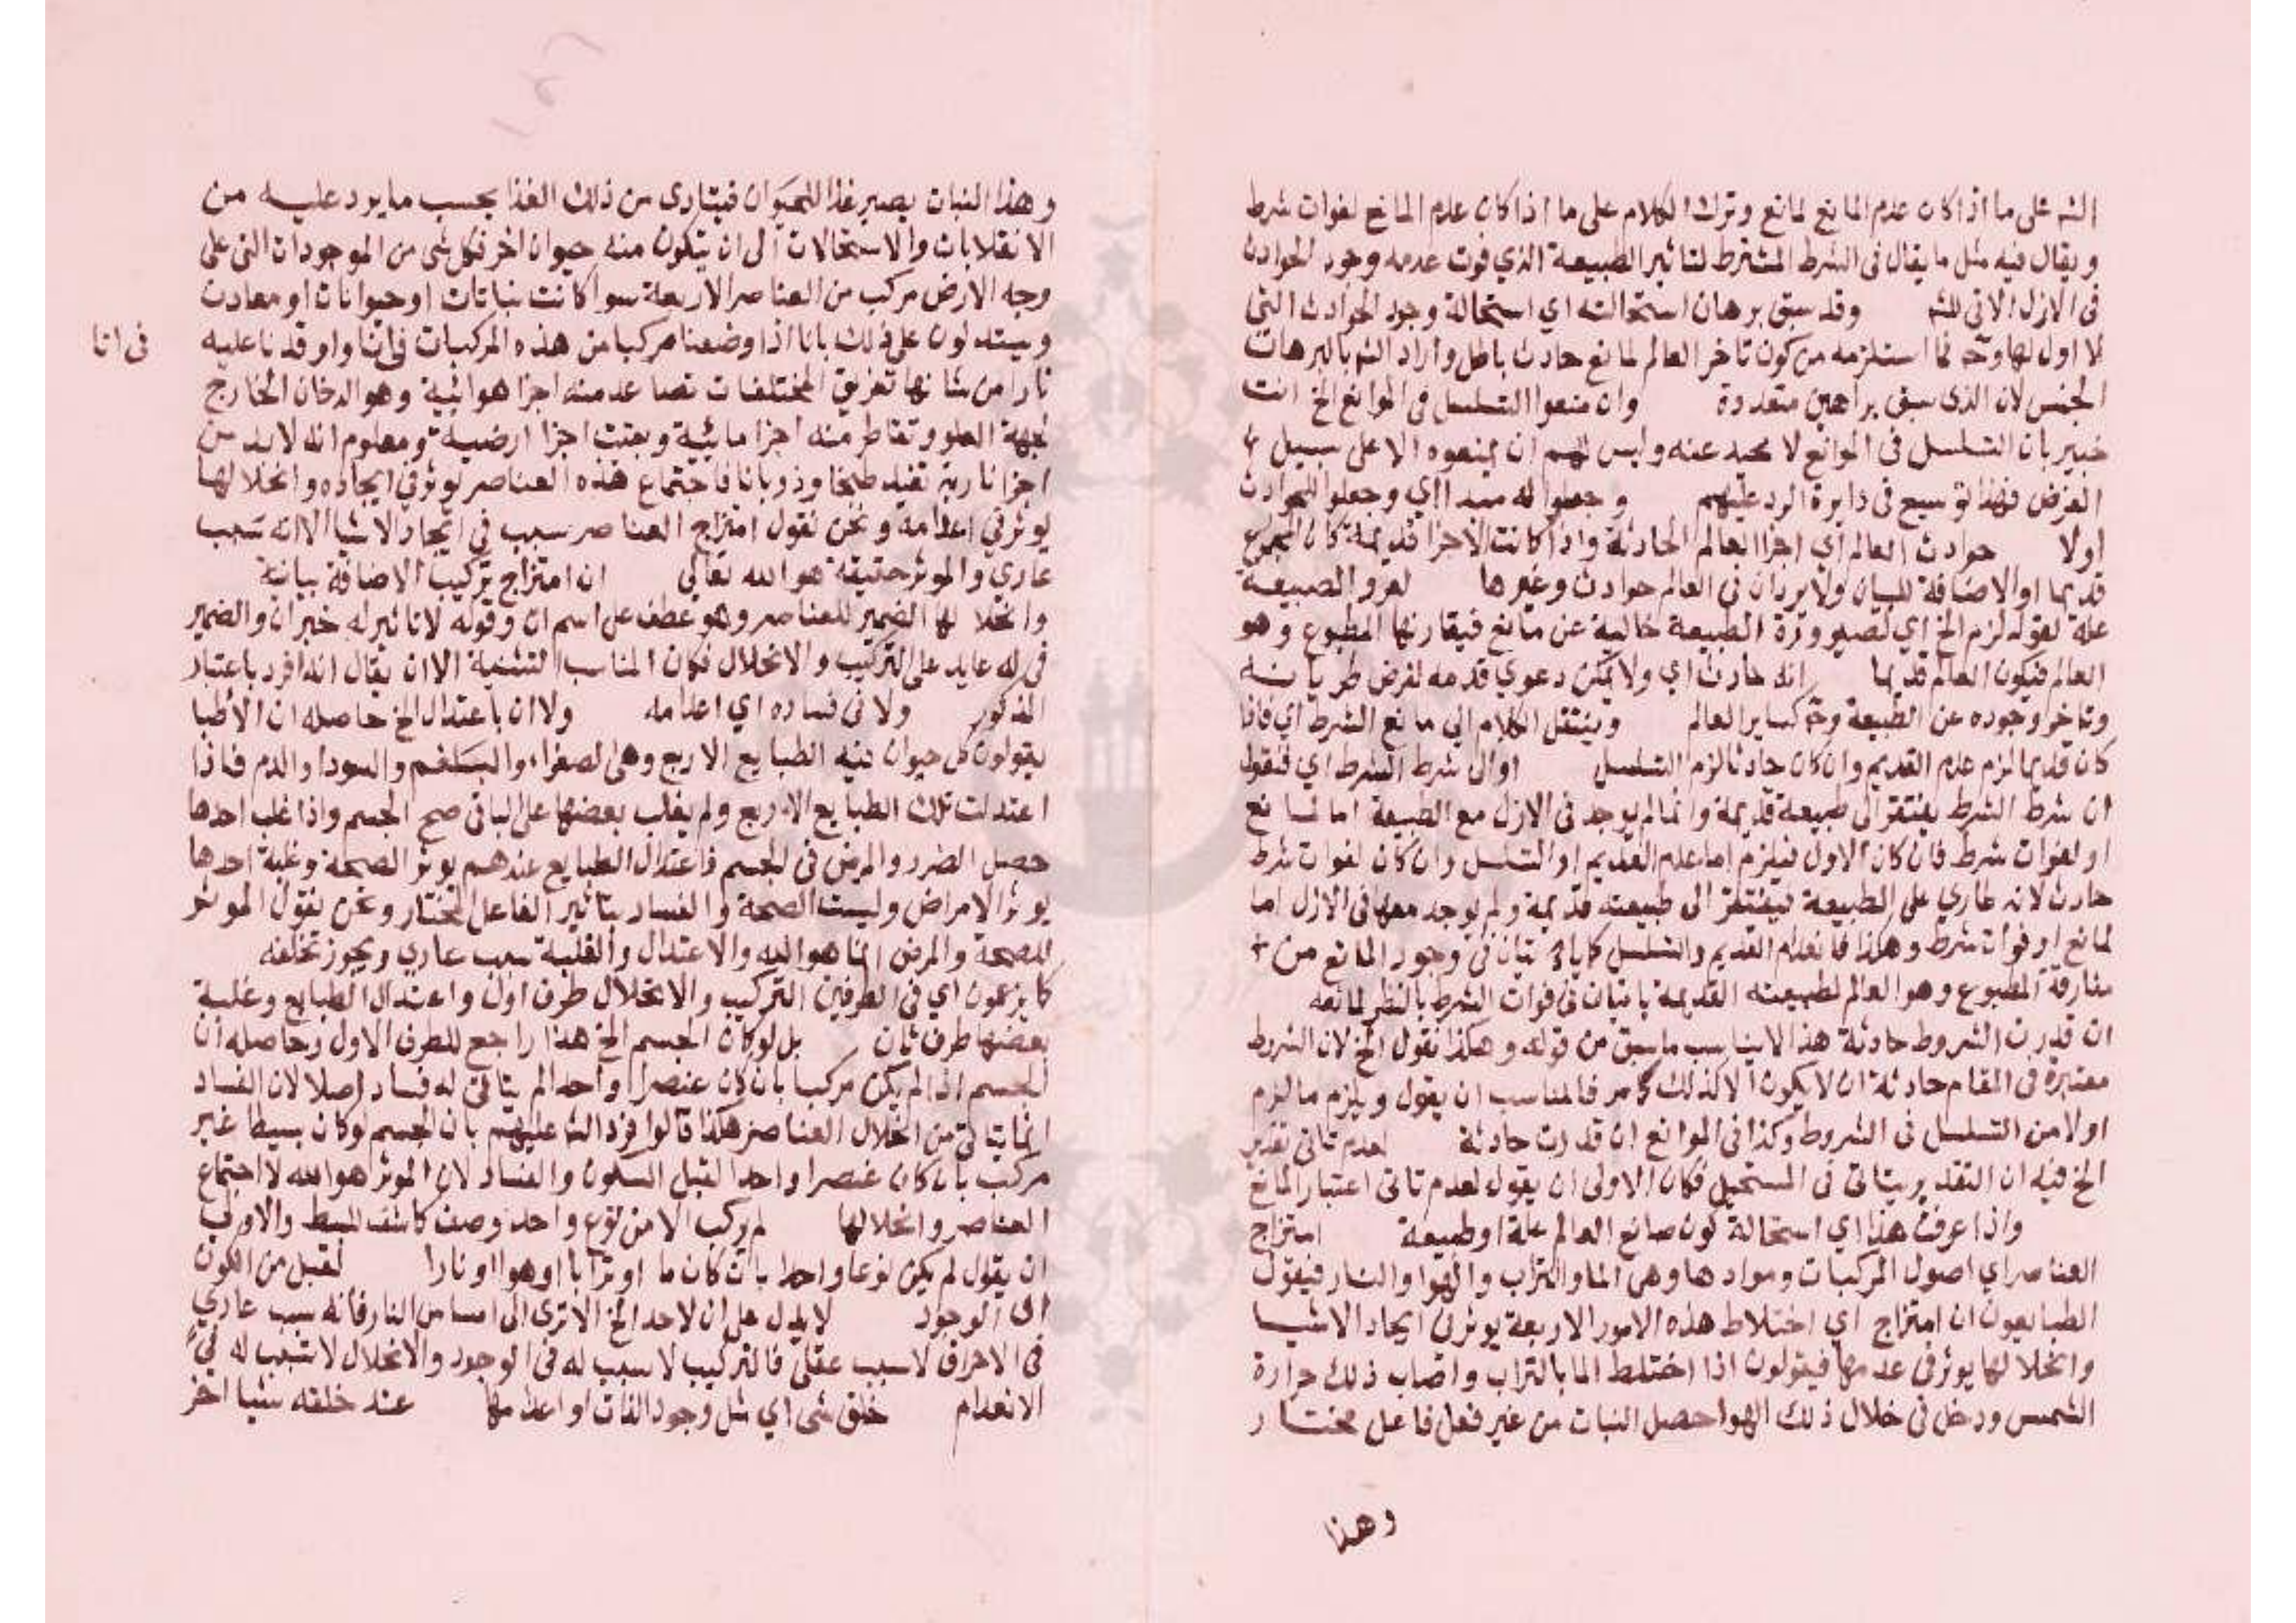 الشه على ما اذا كان عدم المانع لمانع وترك الكلام على ما اذا كان عدم المانع لفوات شرط
ويقال فيه مثل ما يقال فى الشرط المشترط لتاثير الطبيعة الذي فوت عدمه وجود الحوادث
فى الازل الاتى للشه وقد سبق برهان استحالته اي استحالة وجود الحوادث التى
لا اول لها وح فما استلزمه من كون تاخر العالم لمانع حادث باطل واراد الشه بالبرهان
الجنس لان الذى سبق براهين متعددة وان منعوا التسلسل فى الموانع الخ انت
خبير بان التسلسل فى الموانع لا محيد عنه وليس لهم ان يمنعوه الا على سبيل
الفرض فهذا توسيع فى دايرة الرد عليهم وجعلوا له مبدا اي وجعلوا للحوادث
اولا حوادث العالم اي اجزا العالم الحادثة واذا كانت الاجزا قديمة كان المجموع
قديما او الاضافة للبيان ولا يردان فى العالم حوادث وغيرها لعرو الطبيعة
علة لقوله لزم الخ اي لصيرورة الطبيعة خالية عن مانع فيقارنها المطبوع وهو
العالم فيكون العالم قديما انه حادث اي ولا يمكن دعوي قدمه لفرض طريانه
وتاخر وجوده عن الطبيعة وح كساير العالم وينتقل الكلام الي مانع الشرط اي فاذا
كان قديما لزم عدم القديم وان كان حادثا لزم التسلسل او الى شرط الشرط اي فنقول
ان شرط الشرط يفتقر الى طبيعة قديمة وانما لم يوجد فى الازل مع الطبيعة اما لمانع
او لفوات شرط فان كان الاول فيلزم اما عدم القديم او التسلسل وان كان لفوات شرط
حادث لانه طاري على الطبيعة فيفتقر الى طبيعته قديمة ولم يوجد معها فى الازل اما
لمانع او فوات شرط وهكذا فانعدام القديم والتسلسل كما ياتيان فى وجود المانع من
مقارقة المطبوع وهو العالم لطبيعته القديمة ياتيان فى فوات الشرط بالنظر لمانعه
ان قدرت الشروط حادثة هذا لا يناسب ما سبق من قوله وهكذا نقول الخ لان الشروط
معتبرة فى المقام حادثة ان لا يكون الا كذلك كما مر فالمناسب ان يقول ويلزم ما لزم
اولا من التسلسل فى الشروط وكذا فى الموانع ان قدرت حادثة لعدم تاتى تقدير
الخ فيه ان التقدير يتاتى فى المستحيل فكان الاولى ان يقول لعدم تاتى اعتبار المانع
واذا عرفت هذا اي استحالة كون صانع العالم علة او طبيعة امتزاج
العناصر اي اصول المركبات وموادها وهى الما والتراب والهوا والنار فيقول
الطبايعون ان امتزاج اي اختلاط هذه الامور الاربعة يوثر فى ايجاد الاشيا
وانحلالها يوثر فى عدمها فيقولون اذا اختلط الما بالتراب واصاب ذلك حرارة
الشمس ودخل فى خلال ذلك الهوا حصل النبات من غير فعل فاعل مختار
وهذا
وهذا النبات يصير غذا للحيوان فيتادى من ذلك الغذا بحسب ما يرد عليه من
الانقلابات والاستحالات الى ان يتكون منه حيوان اخر فكل شى من الموجودات التى على
وجه الارض مركب من العناصر الاربعة سوا كانت نباتات او حيوانات او معادن
ويستدلون على ذلك بانا اذا وضعنا مركبا من هذه المركبات فى انا واوقدنا عليه
فى انا
نارا من شانها تفريق المختلفات تصاعد منه اجزا هوائية وهو الدخان الخارج
لجهة العلو وتقاطر منه اجزا مائية وبقيت اجزا ارضية ومعلوم انه لابد من
اجزا نارية تفيد طبخا وذوبانا فاجتماع هذه العناصر يوثر في ايجاده وانحلالها
يوثر في اعدامه ونحن نقول امتزاج العناصر سبب في ايجاد الاشيا الا انه سبب
عادي والموثر حقيقة هو الله تعالى ان امتزاج تركيب الاضافة بيانية
وانحلالها الضمير للعناصر وهو عطف على اسم ان وقوله لا تاثير له خبر ان والضمير
فى له عايد على التركيب والانحلال فكان المناسب التثنية الا ان يقال انه افرد باعتبار
المذكور ولا فى فساده اي اعدامه ولا ان باعتدال الخ حاصله ان الاطبا
يقولون كل حيوان فيه الطبايع الاربع وهى الصفراء والبلغم والسودا والدم فاذا
اعتدلت تلك الطبايع الاربع ولم يغلب بعضها على الباقى صح الجسم واذا غلب احدها
حصل الضرر والمرض فى الجسم فاعتدال الطبايع عندهم يوثر الصحة وغلبة احدها
يوثر الامراض وليست الصحة والفساد بتاثير الفاعل المختار ونحن نقول الموثر
للصحة والمرض انما هو الله والاعتدال والغلبة سبب عادي ويجوز تخلفه
كما يزعمون اي فى الطرفين التركيب والانحلال طرف اول واعتدال الطبايع وغلبة
بعضها طرف ثان بل لو كان الجسم الخ هذا راجع للطرف الاول وحاصله ان
الجسم اذا لم يكن مركبا بان كان عنصرا واحدا لم يتاتى له فساد اصلا لان الفساد
انما يتاتى من انحلال العناصر هكذا قالوا فرد الشه عليهم بان الجسم لو كان بسيطا غير
مركب بان كان عنصرا واحدا لقبل السكون والفساد لان الموثر هو الله لا اجتماع
العناصر وانحلالها لم يركب الا من نوع واحد وصف كاشف للبسيط والاولى
ان يقول لم يكن نوعا واحدا بان كان ما او ترابا او هوا او نارا لقبل من الكون
اى الوجود لا يدل على ان لاحد الخ الا ترى الى امساس النار فانه سبب عادي
فى الاحراق لا سبب عقلى فالتركيب لا سبب له فى الوجود والانحلال لا سبب له في
الانعدام خلق شى اي مثل وجود الذات او اعدامها عند خلقه شيا اخر